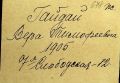 Гайдай
Вера Тимофеевна
1906
Слободская - 12